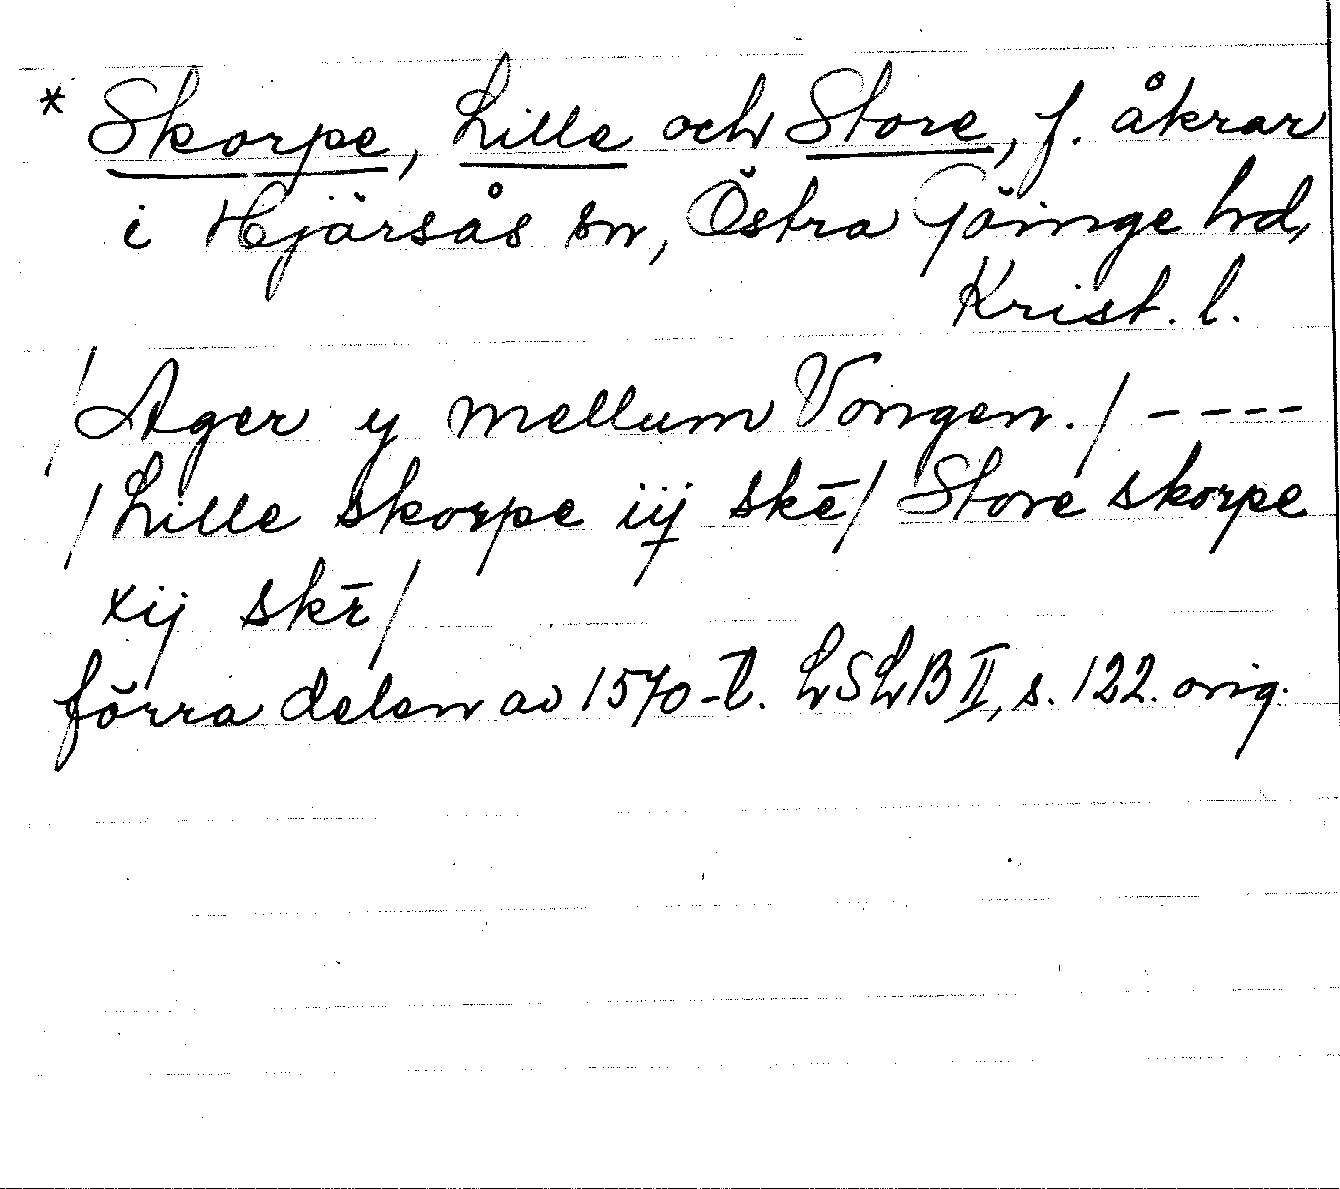 * Skorpe, Lille och Store, f. åkrar
i Hjärsås sn, Östra Göinge hd,
Krist. l.
/Ager y mellum Vongen./ ----
/Lille skorpe iij skē/ Store skorpe
xij skē/
förra delen av 1570-t. LSLB II, s. 122. orig.